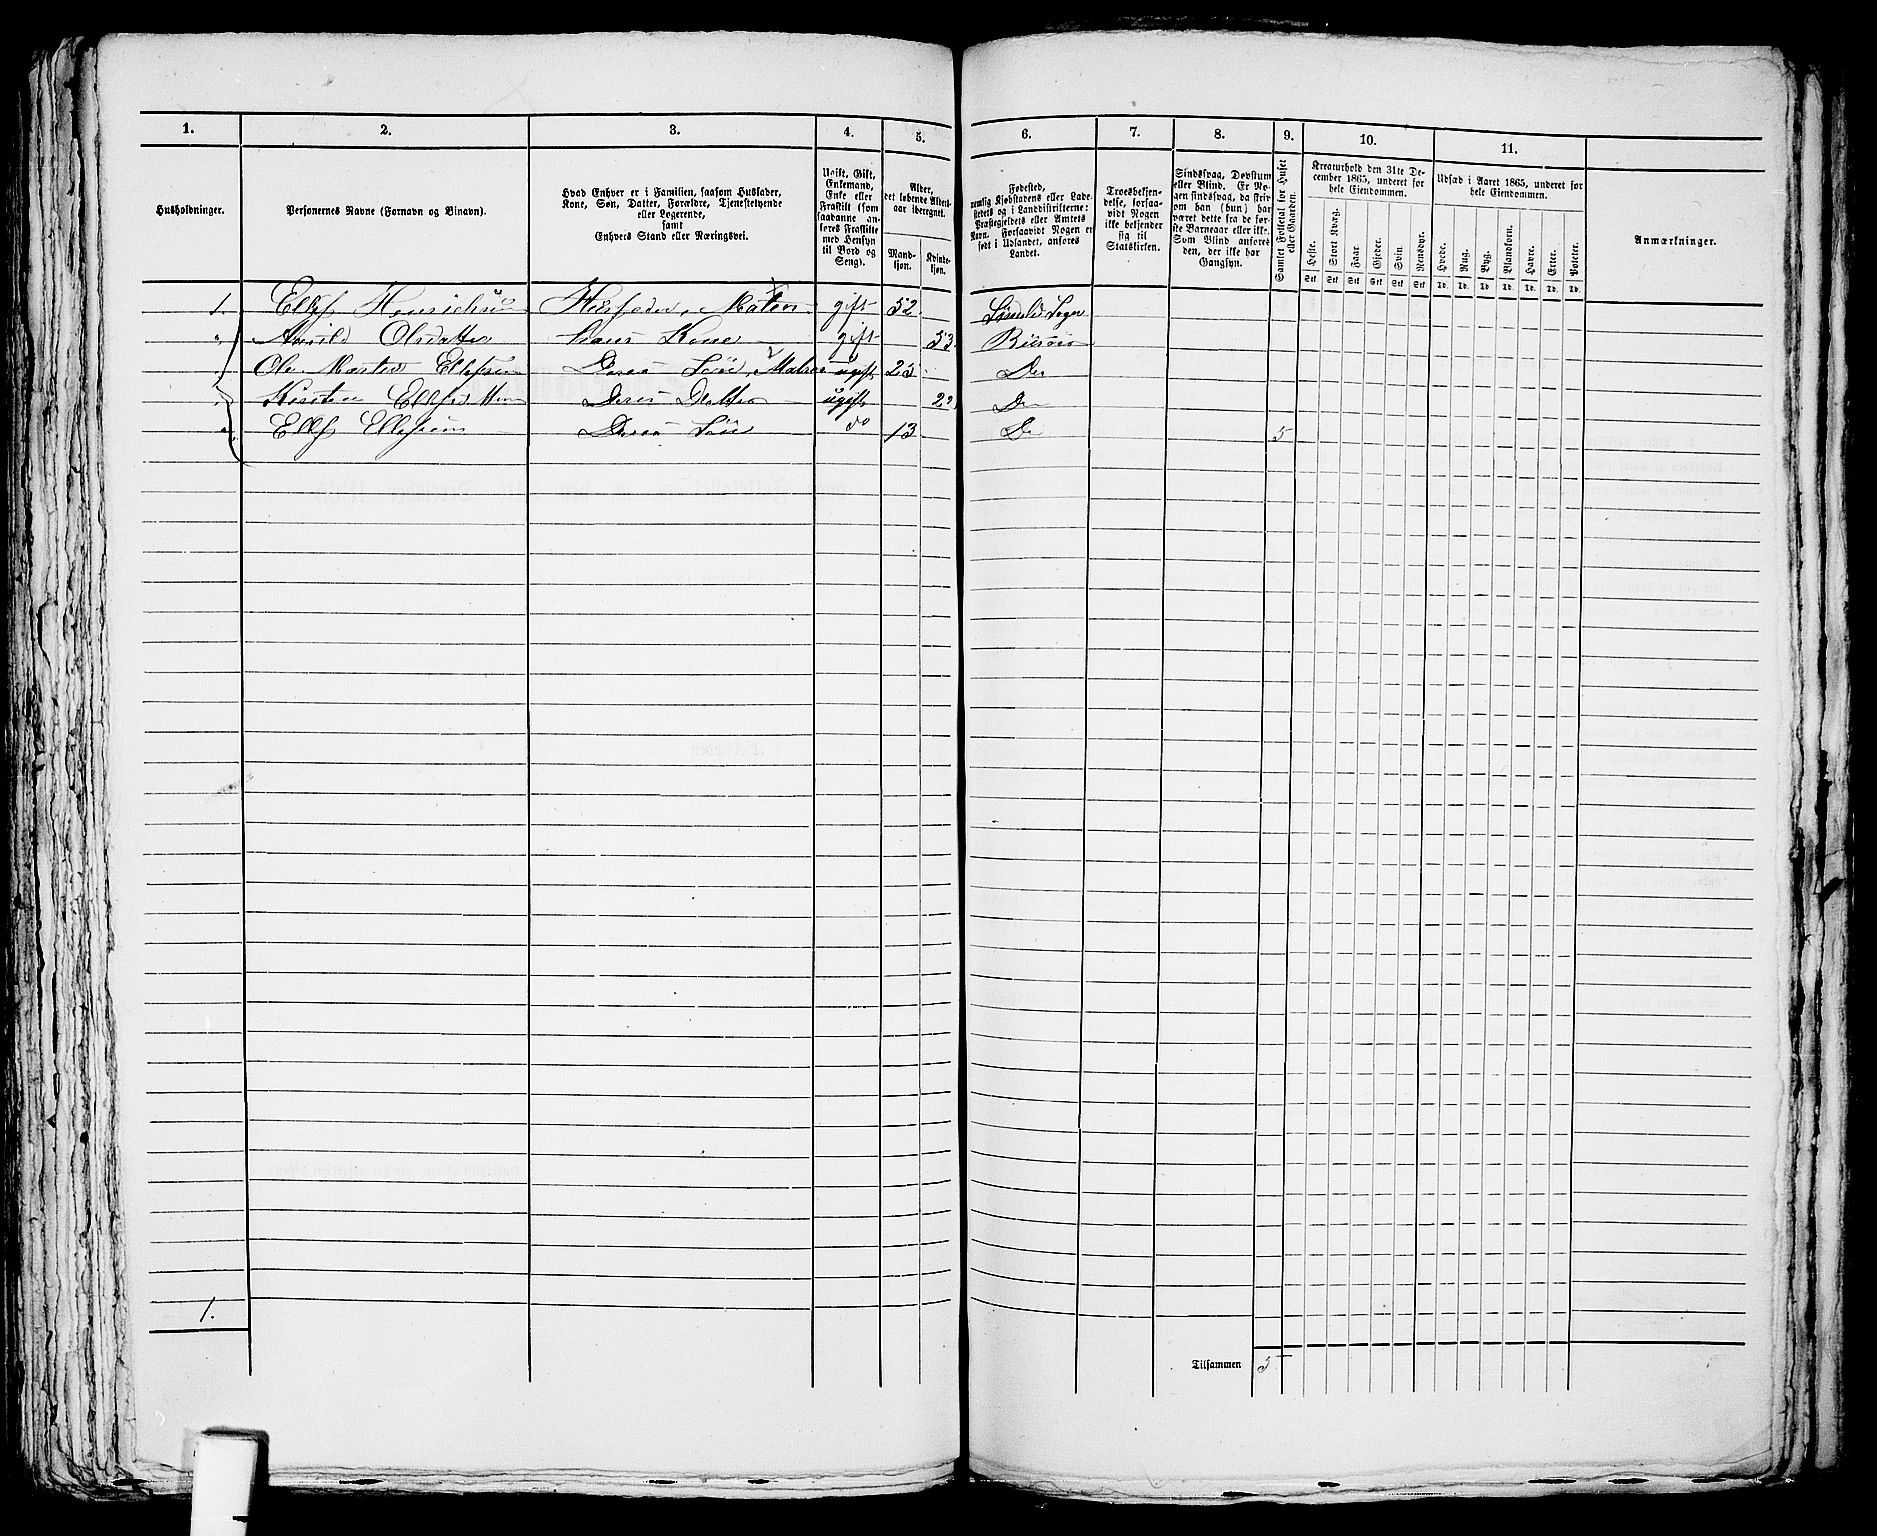 1. 2. 3. 4. 5. 6. 7. 8. 9. 10. 11.
Husholdninger.
Personernes Navne (Fornavn og Binavn).
Hvad Enhver er i Familien, saasom Husfader,
Kone, Søn, Datter, Forældre, Tjenestetyende
eller Logerende,
samt
Enhvers Stand eller Næringsvei.
Ugift, Gift,
Enkemand,
Enke eller
Fraskilt (som
saadanne an-
føres Fraskilte
med Hensyn
til Bord og
Seng).
Alder,
det løbende Alders-
aar iberegnet.
Mand-
kjøn.
Kvinde-
kjøn.
Fødested,
nemlig Kjøbstadens eller Lade-
stedets og i Landdistrikterne:
Præstegjeldets eller Amtets
Navn. Forsaavidt Nogen er
født i Udlandet, anføres
Landet.
Troesbekjen-
delse, forsaa-
vidt Nogen
ikke bekjender
sig til
Statskirken.
Sindssvag, Døvstum
eller Blind. Er No-
gen sindssvag, da skriv
om han (hun) har
været dette fra de før-
ste Barneaar eller ikke.
Som Blind anføres
den, der ikke har
Gangsyn.
Samlet Folketal for Huset
eller Gaarden.
Kreaturhold den 31te De-
cember 1865, underet for
hele Eiendommen.
Heste. Stort Kvæg. Faar. Gjeder. Svin. Rensdyr.
Stk. Stk. Stk. Stk. Stk. Stk.
Udsæd i Aaret 1865, underet for
hele Eiendommen.
Hvede. Rug. Byg. Blandkorn. Havre. Erter. Poteter.
Td. Td. Td. Td. Td. Td. Td.
Anmærkninger.
1. Ellef Henrichsen Husfader, gift 52
Olsdatter Hans Kone gift 53
Ole Ellefsen Deres Søn, Matros ugift 23 Do
Kirsten Deres Datter ugift 22 Do
Ellef Ellefsen Deres Søn do 13 Do 5
1.
Tilsammen 5